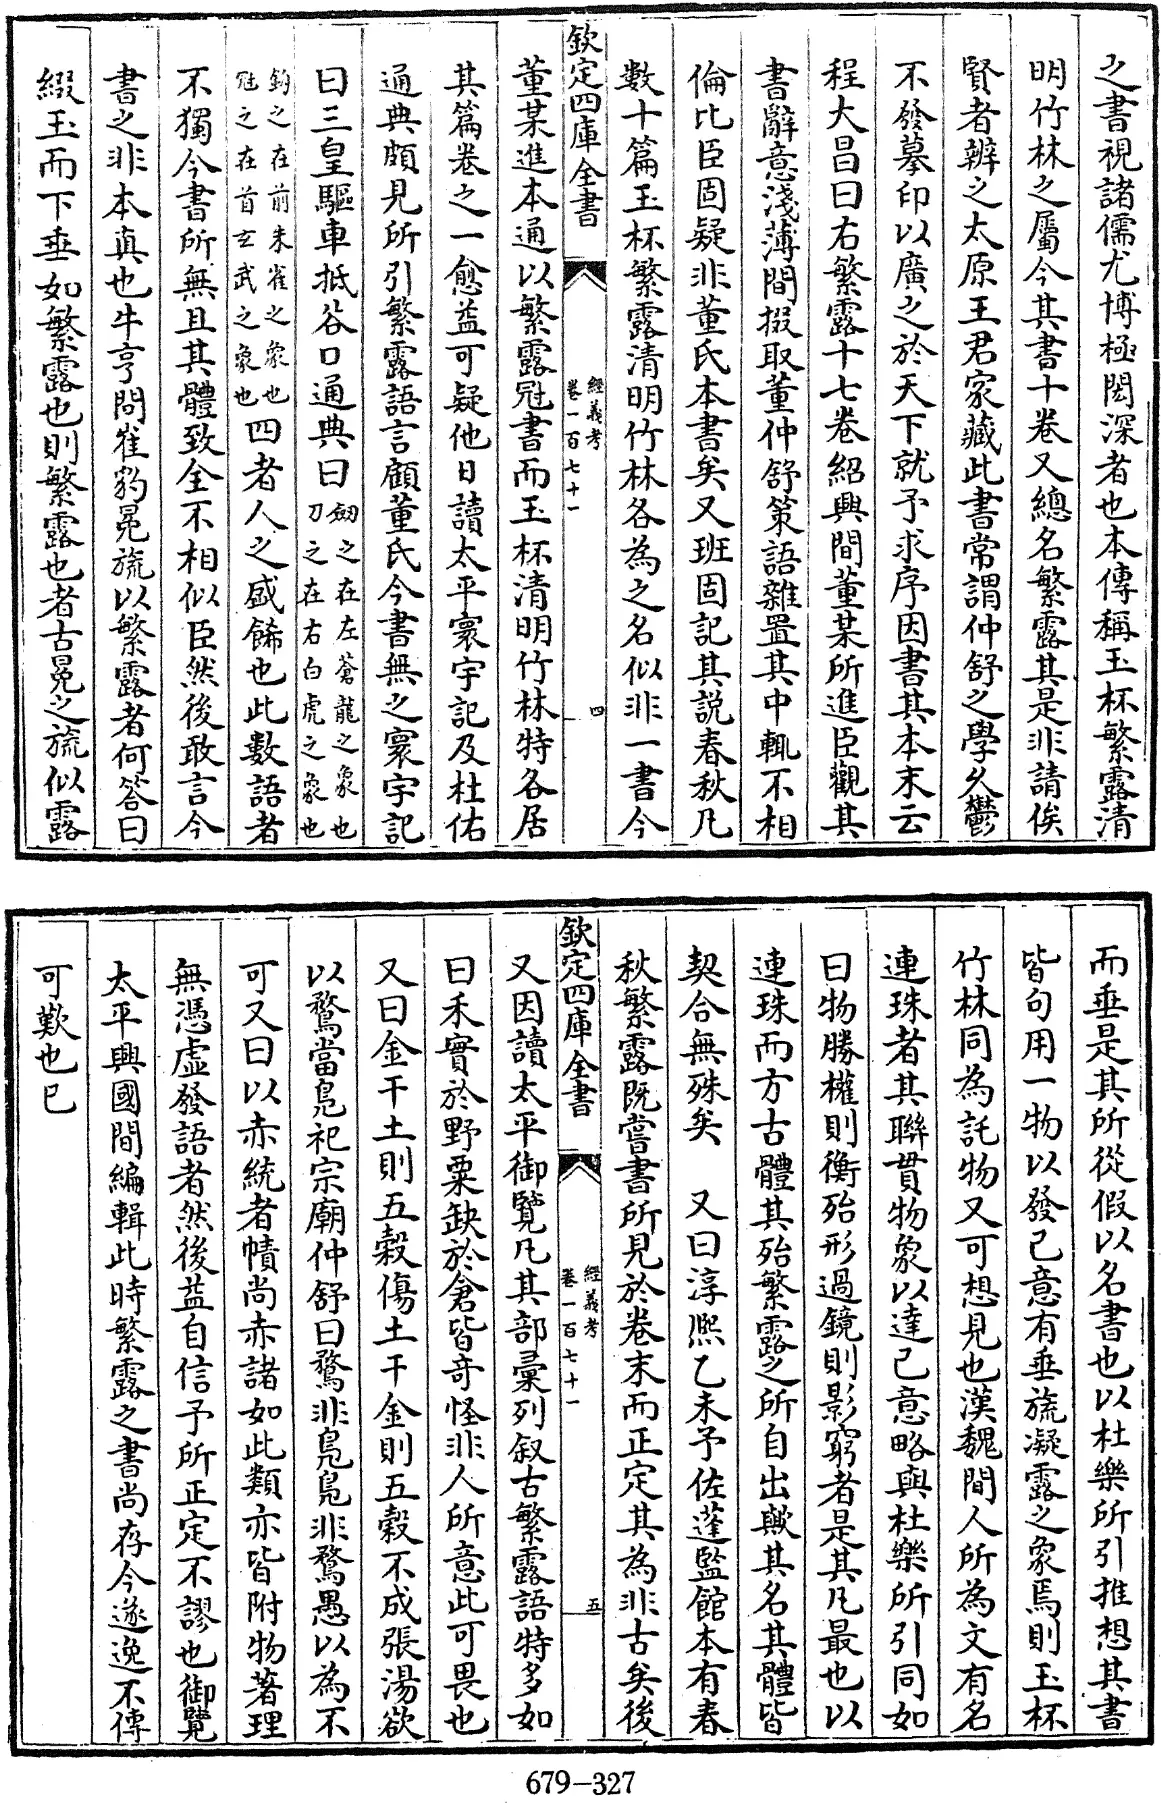 之書視諸儒尤博極閎深者也本傳稱玉杯繁露清
明竹林之屬今其書十卷又總名繁露其是非請俟
賢者辨之太原王君家藏此書常謂仲舒之學久鬱
不發摹印以廣之於天下就予求序因書其本末云
程大昌曰右繁露十七卷紹興間董某所進臣觀其
書辭意淺薄間掇取董仲舒策語雜置其中輒不相
倫比臣固疑非董氏本書矣又班固記其說春秋凡
數十篇玉杯繁露清明竹林各為之名似非一書今
欽定四庫全書
經義考
卷一百七十一
四
董某進本通以繁露冠書而玉杯清明竹林特各居
其篇卷之一愈益可疑他日讀太平寰宇記及杜佑
通典頗見所引繁露語言顧董氏今書無之寰宇記
曰三皇驅車抵谷口通典曰劒之在左蒼龍之象也
刀之在右白虎之象也
鉤之在前朱雀之象也
冠之在首玄武之象也四者人之盛飾也此數語者
不獨今書所無且其體致全不相似臣然後敢言今
書之非本真也牛亨問崔豹冕旒以繁露者何答曰
綴玉而下垂如繁露也則繁露也者古冕之旒似露
而垂是其所從假以名書也以杜樂所引推想其書
皆句用一物以發己意有垂旒凝露之象焉則玉杯
竹林同為託物又可想見也漢魏間人所為文有名
連珠者其聯貫物象以達己意略與杜樂所引同如
曰物勝權則衡殆形過鏡則影窮者是其凡最也以
連珠而方古體其殆繁露之所自出歟其名其體皆
契合無殊矣　又曰淳熙乙未予佐蓬監館本有春
秋繁露既嘗書所見於卷末而正定其為非古矣後
欽定四庫全書
經義考
卷一百七十一
五
又因讀太平御覽凡其部彙列叙古繁露語特多如
曰禾實於野粟缺於倉皆奇怪非人所意此可畏也
又曰金干土則五穀傷土干金則五穀不成張湯欲
以鶩當鳧祀宗廟仲舒曰鶩非鳧鳧非鶩愚以為不
可又曰以赤統者幘尚赤諸如此類亦皆附物著理
無憑虛發語者然後益自信予所正定不謬也御覽
太平興國間編輯此時繁露之書尚存今遂逸不傳
可歎也已
679-327